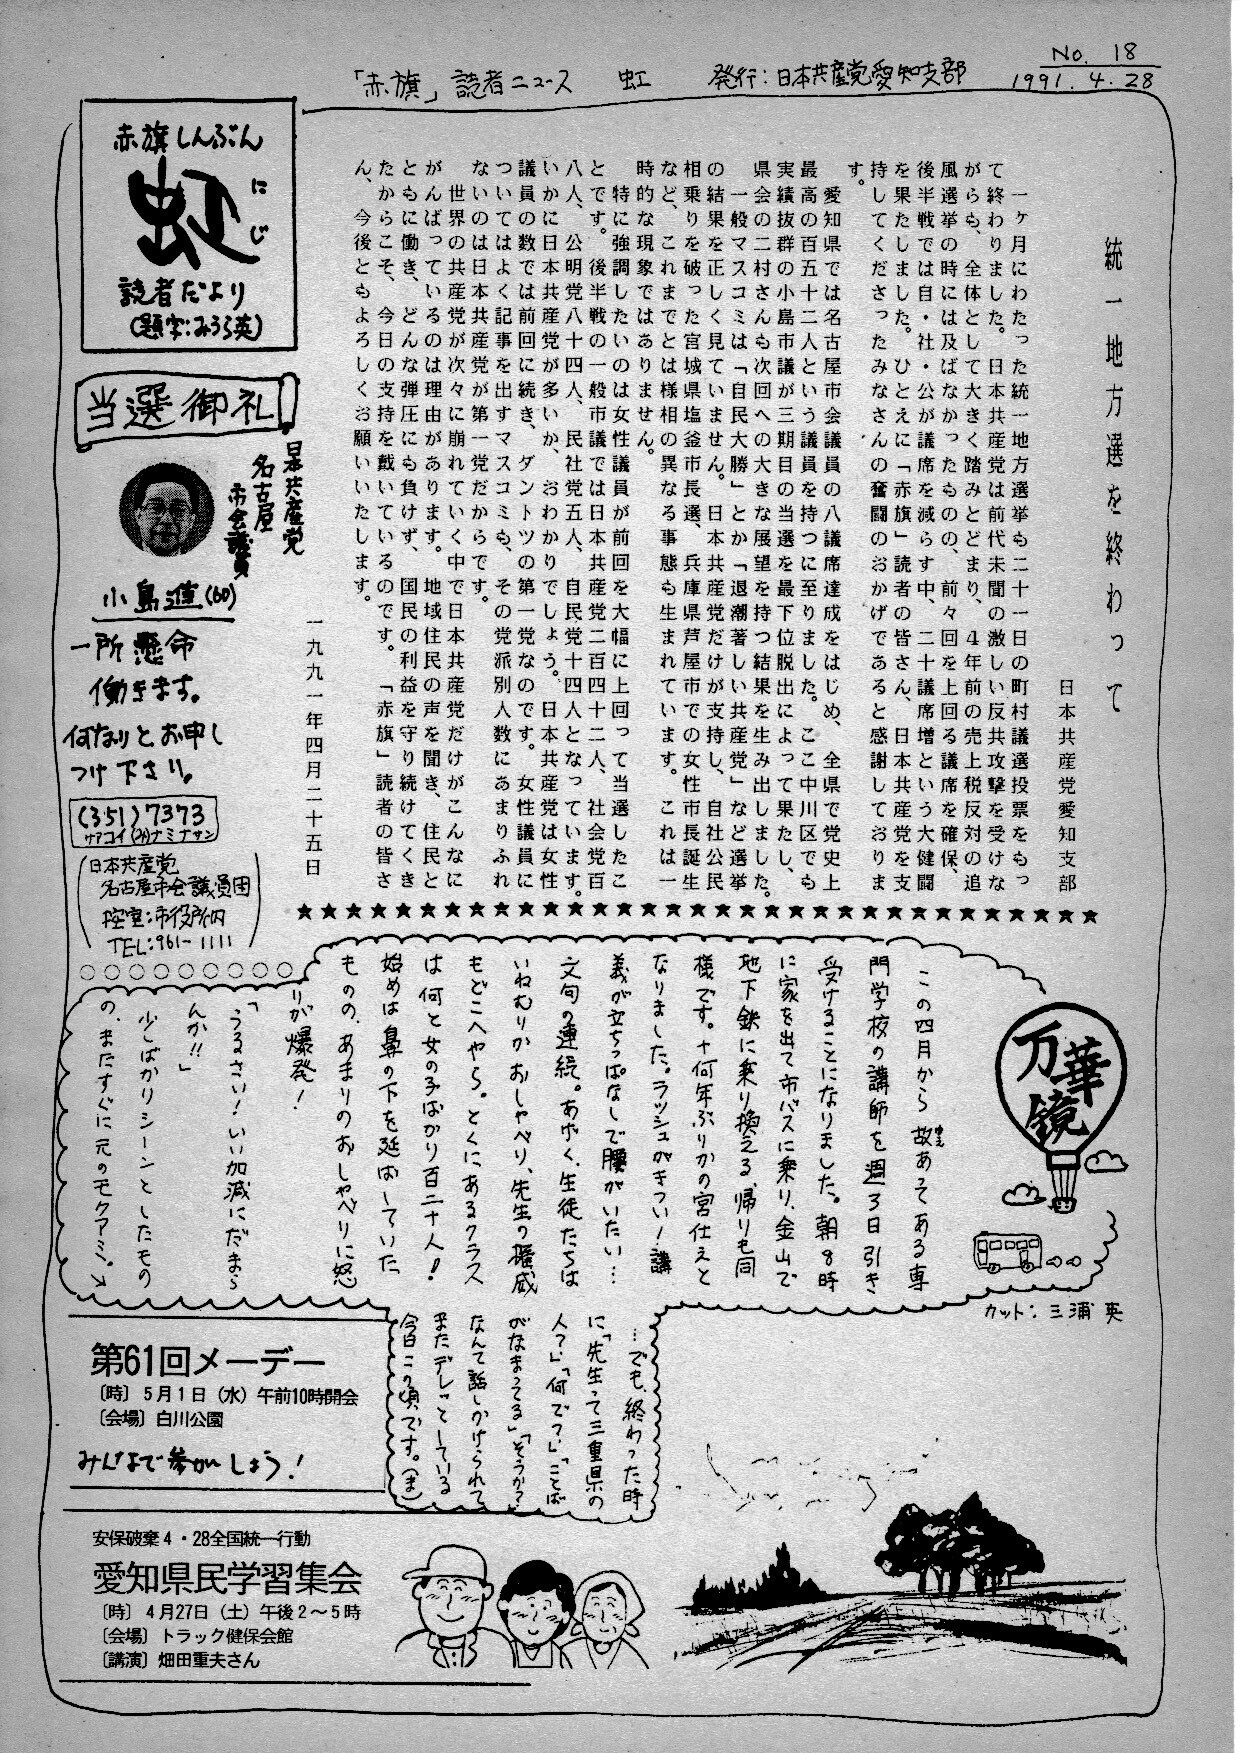 No. 18
1991.4.28
「赤旗」読者ニュース 虹 発行：日本共産党愛知支部
赤旗しんぶん
虹
にじ
読者だより
(題字：みうら英)
当選御礼
日本共産党
名古屋
市会議員
小島 (60)
一所懸命
働きます。
何なりとお申し
つけ下さい。
(351)7373
日本共産党
名古屋市会議員団
控室：市役所内
TEL：961-1111
統一地方選を終わって
日本共産党愛知支部
一ヶ月にわたった統一地方選挙も二十一日の町村議選投票をもっ
て終わりました。日本共産党は前代未聞の激しい反共攻撃を受けな
がらも、全体として大きく踏みとどまり、４年前の売上税反対の追
風選挙の時には及ばなかったものの、前々回を上回る議席を確保、
後半戦では自・社・公が議席を減らす中、二十議席増という大健闘
を果たしました。ひとえに「赤旗」読者の皆さん、日本共産党を支
持してくださったみなさんの奮闘のおかげであると感謝しておりま
す。
愛知県では名古屋市会議員の八議席達成をはじめ、全県で党史上
最高の百五十二人という議員を持つに至りました。ここ中川区でも
実績抜群の小島市議が三期目の当選を最下位脱出によって果たし、
県会の二村さんも次回への大きな展望を持つ結果を生み出しました。
一般マスコミは「自民大勝」とか「退潮著しい共産党」など選挙
の結果を正しく見ていません。日本共産党だけが支持し、自社公民
相乗りを破った宮城県塩釜市長選、兵庫県芦屋市での女性市長誕生
など、これまでとは様相の異なる事態も生まれています。これは一
時的な現象ではありません。
特に強調したいのは女性議員が前回を大幅に上回って当選したこ
とです。後半戦の一般市議では日本共産党二百四十二人、社会党百
八人、公明党八十四人、民社党五人、自民党十四人となっています。
いかに日本共産党が多いか、おわかりでしょう。日本共産党は女性
議員の数では前回に続き、ダントツの第一党なのです。女性議員に
ついてはよく記事を出すマスコミも、その党派別人数にあまりふれ
ないのは日本共産党が第一党だからです。
世界の共産党が次々に崩れていく中で日本共産党だけがこんなに
がんばっているのは理由があります。地域住民の声を聞き、住民と
ともに働き、どんな弾圧にも負けず、国民の利益を守り続けてくき
たからこそ、今日の支持を戴いているのです。「赤旗」読者の皆さ
ん、今後ともよろしくお願いいたします。
一九九一年四月二十五日
万華鏡
この四月から故あってある専
ゆえ
門学校の講師を週３日引き
受けることになりました。朝８時
に家を出て市バスに乗り、金山で
地下鉄に乗り換える、帰りも同
様です。十何年ぶりかの宮仕えと
なりました。ラッシュがきつい！講
義が立ちっぱなしで腰がいたい…
文句の連続。あげく、生徒たちは
いねむりかおしゃべり、先生の権威
もどこへやら。とくにあるクラス
は何と女の子ばかり百二十人！
始めは鼻の下を延ばしていた
ものの、あまりのおしゃべりに怒
りが爆発！
「うるさい！いい加減にだまら
んか!!」
少しばかりシーンとしたもの
の、またすぐに元のモクアミ。
…でも、終わった時
に「先生って三重県の
人？」「何で？」「ことば
がなまってる」「そうか？」
なんて話しかけられて
またデレッとしている
今日この頃です。(ま)
カット：三浦 英
第61回メーデー
〔時〕５月１日（水）午前10時開会
〔会場〕白川公園
みんなで参加しましょう！
安保破棄４・28全国統一行動
愛知県民学習集会
〔時〕４月27日（土）午後２～５時
〔会場〕トラック健保会館
〔講演〕畑田重夫さん